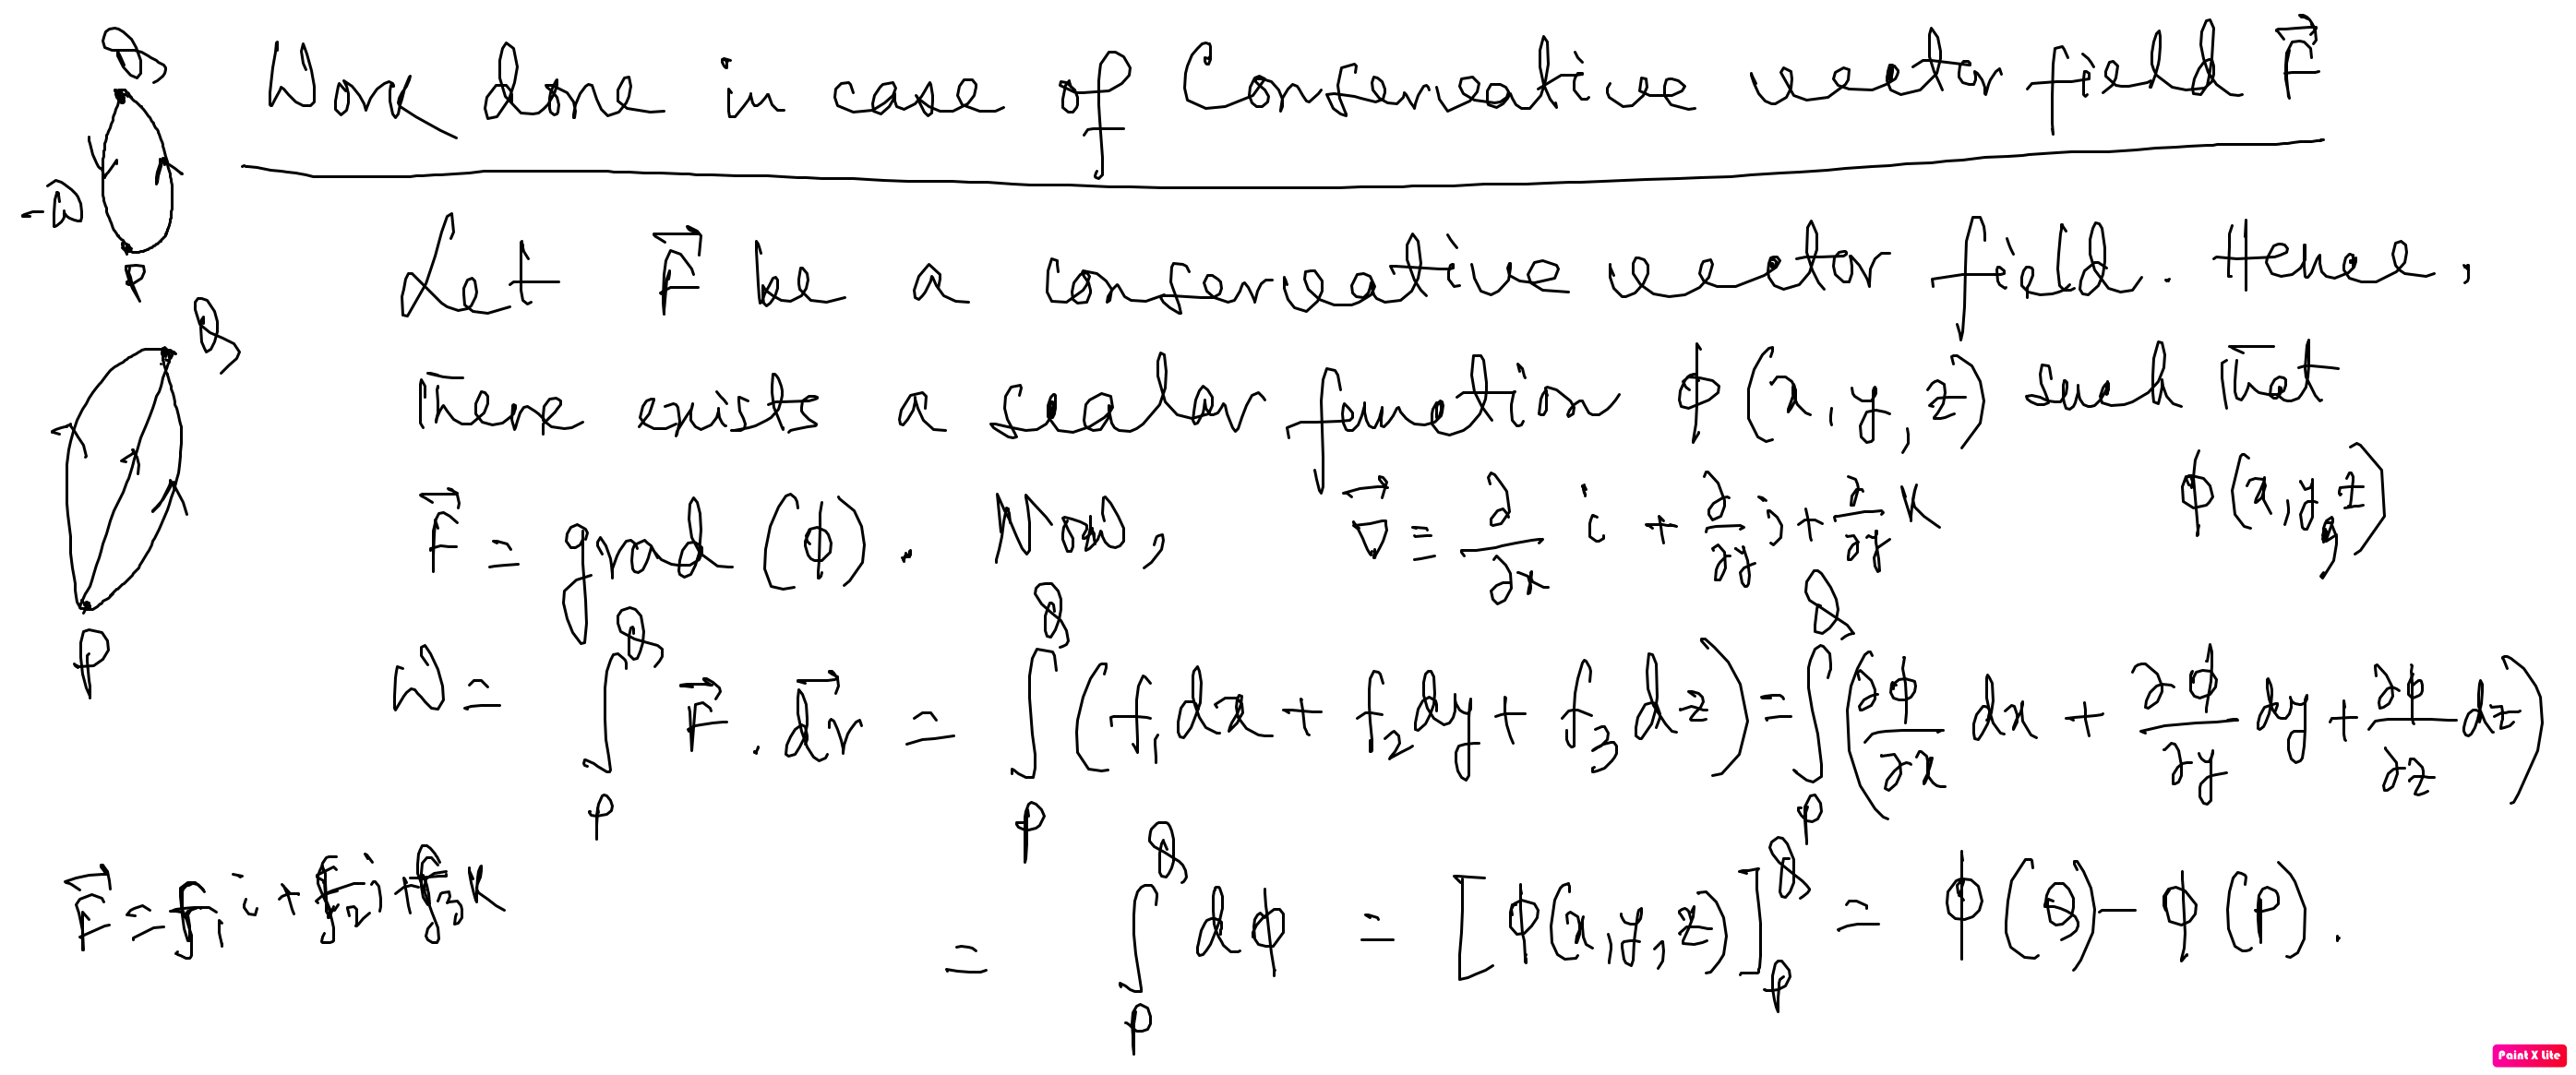 Work done in case of Conservative vector field F⃗
Q
-W⃗
P
Let F⃗ be a conservative vector field. Hence,
Q
there exists a scalar function ϕ(x,y,z) such that
F⃗ = grad (ϕ). Now, ∇⃗ ≡ ∂/∂x i + ∂/∂y j + ∂/∂y k ϕ(x,y,z)
P
W = ∫_P^Q F⃗ . d⃗r = ∫_P^Q (f₁dx + f₂dy + f₃dz) = ∫_P^Q (∂ϕ/∂x dx + ∂ϕ/∂y dy + ∂ϕ/∂z dz)
F⃗ = f₁i + f₂j + f₃k
= ∫_P^Q dϕ = [ϕ(x,y,z)]_P^Q = ϕ(Q) - ϕ(P).
Paint X Lite